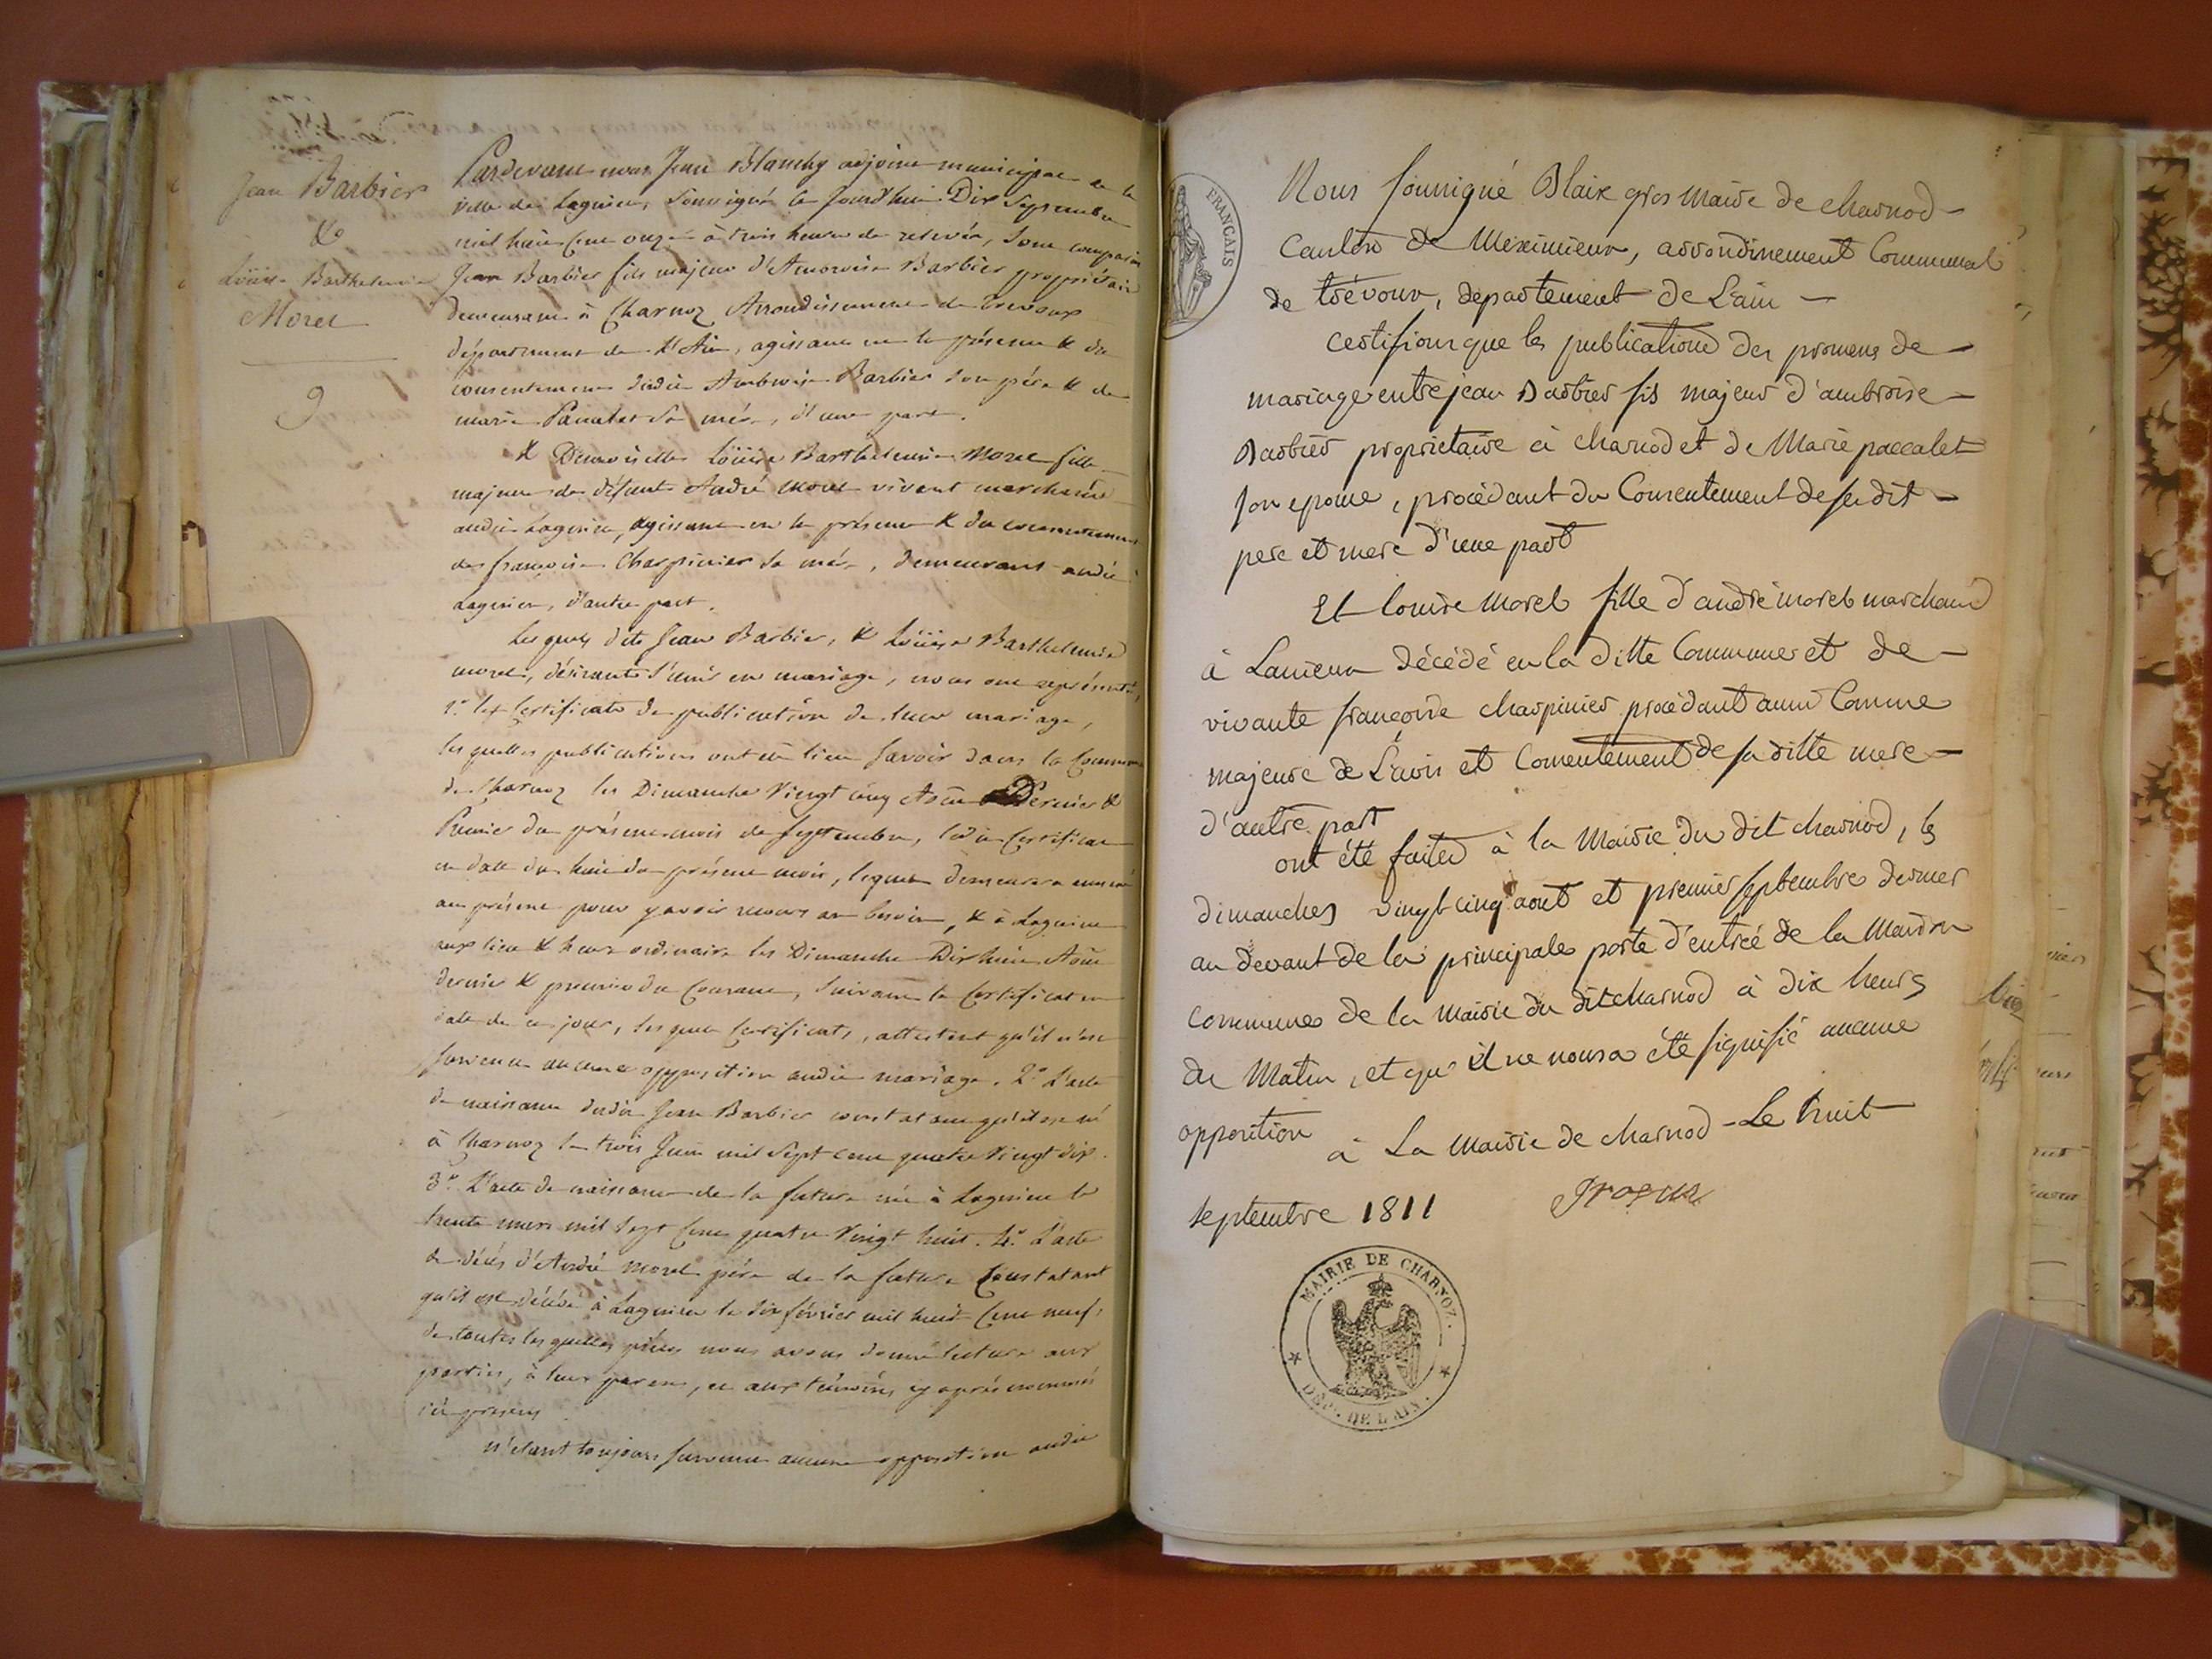 Jean Barbier
&
Loüise Barthelemie
Morel
9
Pardevant nous Jean Blanchy adjoint municipal de la
ville de Lagnieu, soussigné le jourd'hui Dix Septembre
mil huit cent onze à trois heures de relevée, sont comparus
Jean Barbier fils majeur d'Ambroise Barbier propriétaire
demeurant à Charnoz Arrondissement de Trevoux
département de l'Ain, agissant en la présence & du
consentement dudit Ambroise Barbier son père & de
marie Paccalet sa mère, d'une part.
& Demoiselle Loüise Barthelemie Morel fille
majeure de défunt André Morel vivant marchand
audit Lagnieu, agissant en la présence & du consentement
de françoise Charpinier sa mère, demeurant audit
Lagnieu, d'autre part.
Les quels dits Jean Barbier, & Loüise Barthelemie
morel, désirants s'unir en mariage, nous ont représenté,
1° les Certificats de publication de leur mariage,
les quelles publications ont eu lieu savoir dans la Commune
de Charnoz les Dimanche Vingt cinq Aoûst Dernier &
Premier du présent mois de septembre, ledit Certificat
en date du huit du présent mois, lequel demeurera annexé
au présent pour y avoir recours au besoin, & à Lagnieu
aux lieu & heure ordinaire les Dimanche Dix huit Aoûst
dernier & premier du Courant, suivant le Certificat en
date de ce jour, les quels Certificats, attestent qu'il n'est
survenu aucune opposition audit mariage. 2° L'acte
de naissance dudit Jean Barbier constatant qu'il est né
à Charnoz le trois Juin mil Sept cent quatre Vingt dix.
3° L'acte de naissance de la future née à Lagnieu le
trente mars mil sept Cent quatre Vingt huit. 4° L'acte
de décès d'André Morel père de la future Constatant
qu'il est décédé à Lagnieu le dix février mil huit Cent neuf,
de toutes les quelles pièces nous avons donné lecture aux
parties, à leur parens, et aux témoins cy après nommés
ici présens
n'étant toujours survenue aucune opposition audit
FRANÇAIS
Nous soussigné Blaix gros Maire de charnod
Canton de Meximieux, arrondinement Communal
de trévoux, departement de L'ain
certifions que les publications des promens de
mariage entre jean Barbier fils majeur d'ambroise
Barbier proprietaire à charnod et de Marie paccalet
son epouse, procédant du Consentement de sesdit
pere et mere d'une part
Et louise Morel fille d'andré morel marchand
à Lanieux décédé en la ditte Commune et de
vivante françoise charpinier procédant aussi Comme
majeure de L'avis et Consentement de sa ditte mere
d'autre part
ont été faites à la Mairie du dit charnod, les
dimanches vingt cinq aout et premier septembre dernier
au devant de la principale porte d'entrée de la Maison
commune de la mairie du dit charnod à dix heures
du Matin, et qu'il ne nous a été signifié aucune
opposition
à La Mairie de charnod Le huit
septembre 1811
MAIRIE DE CHARNOZ.
DEPt. DE L'AIN.